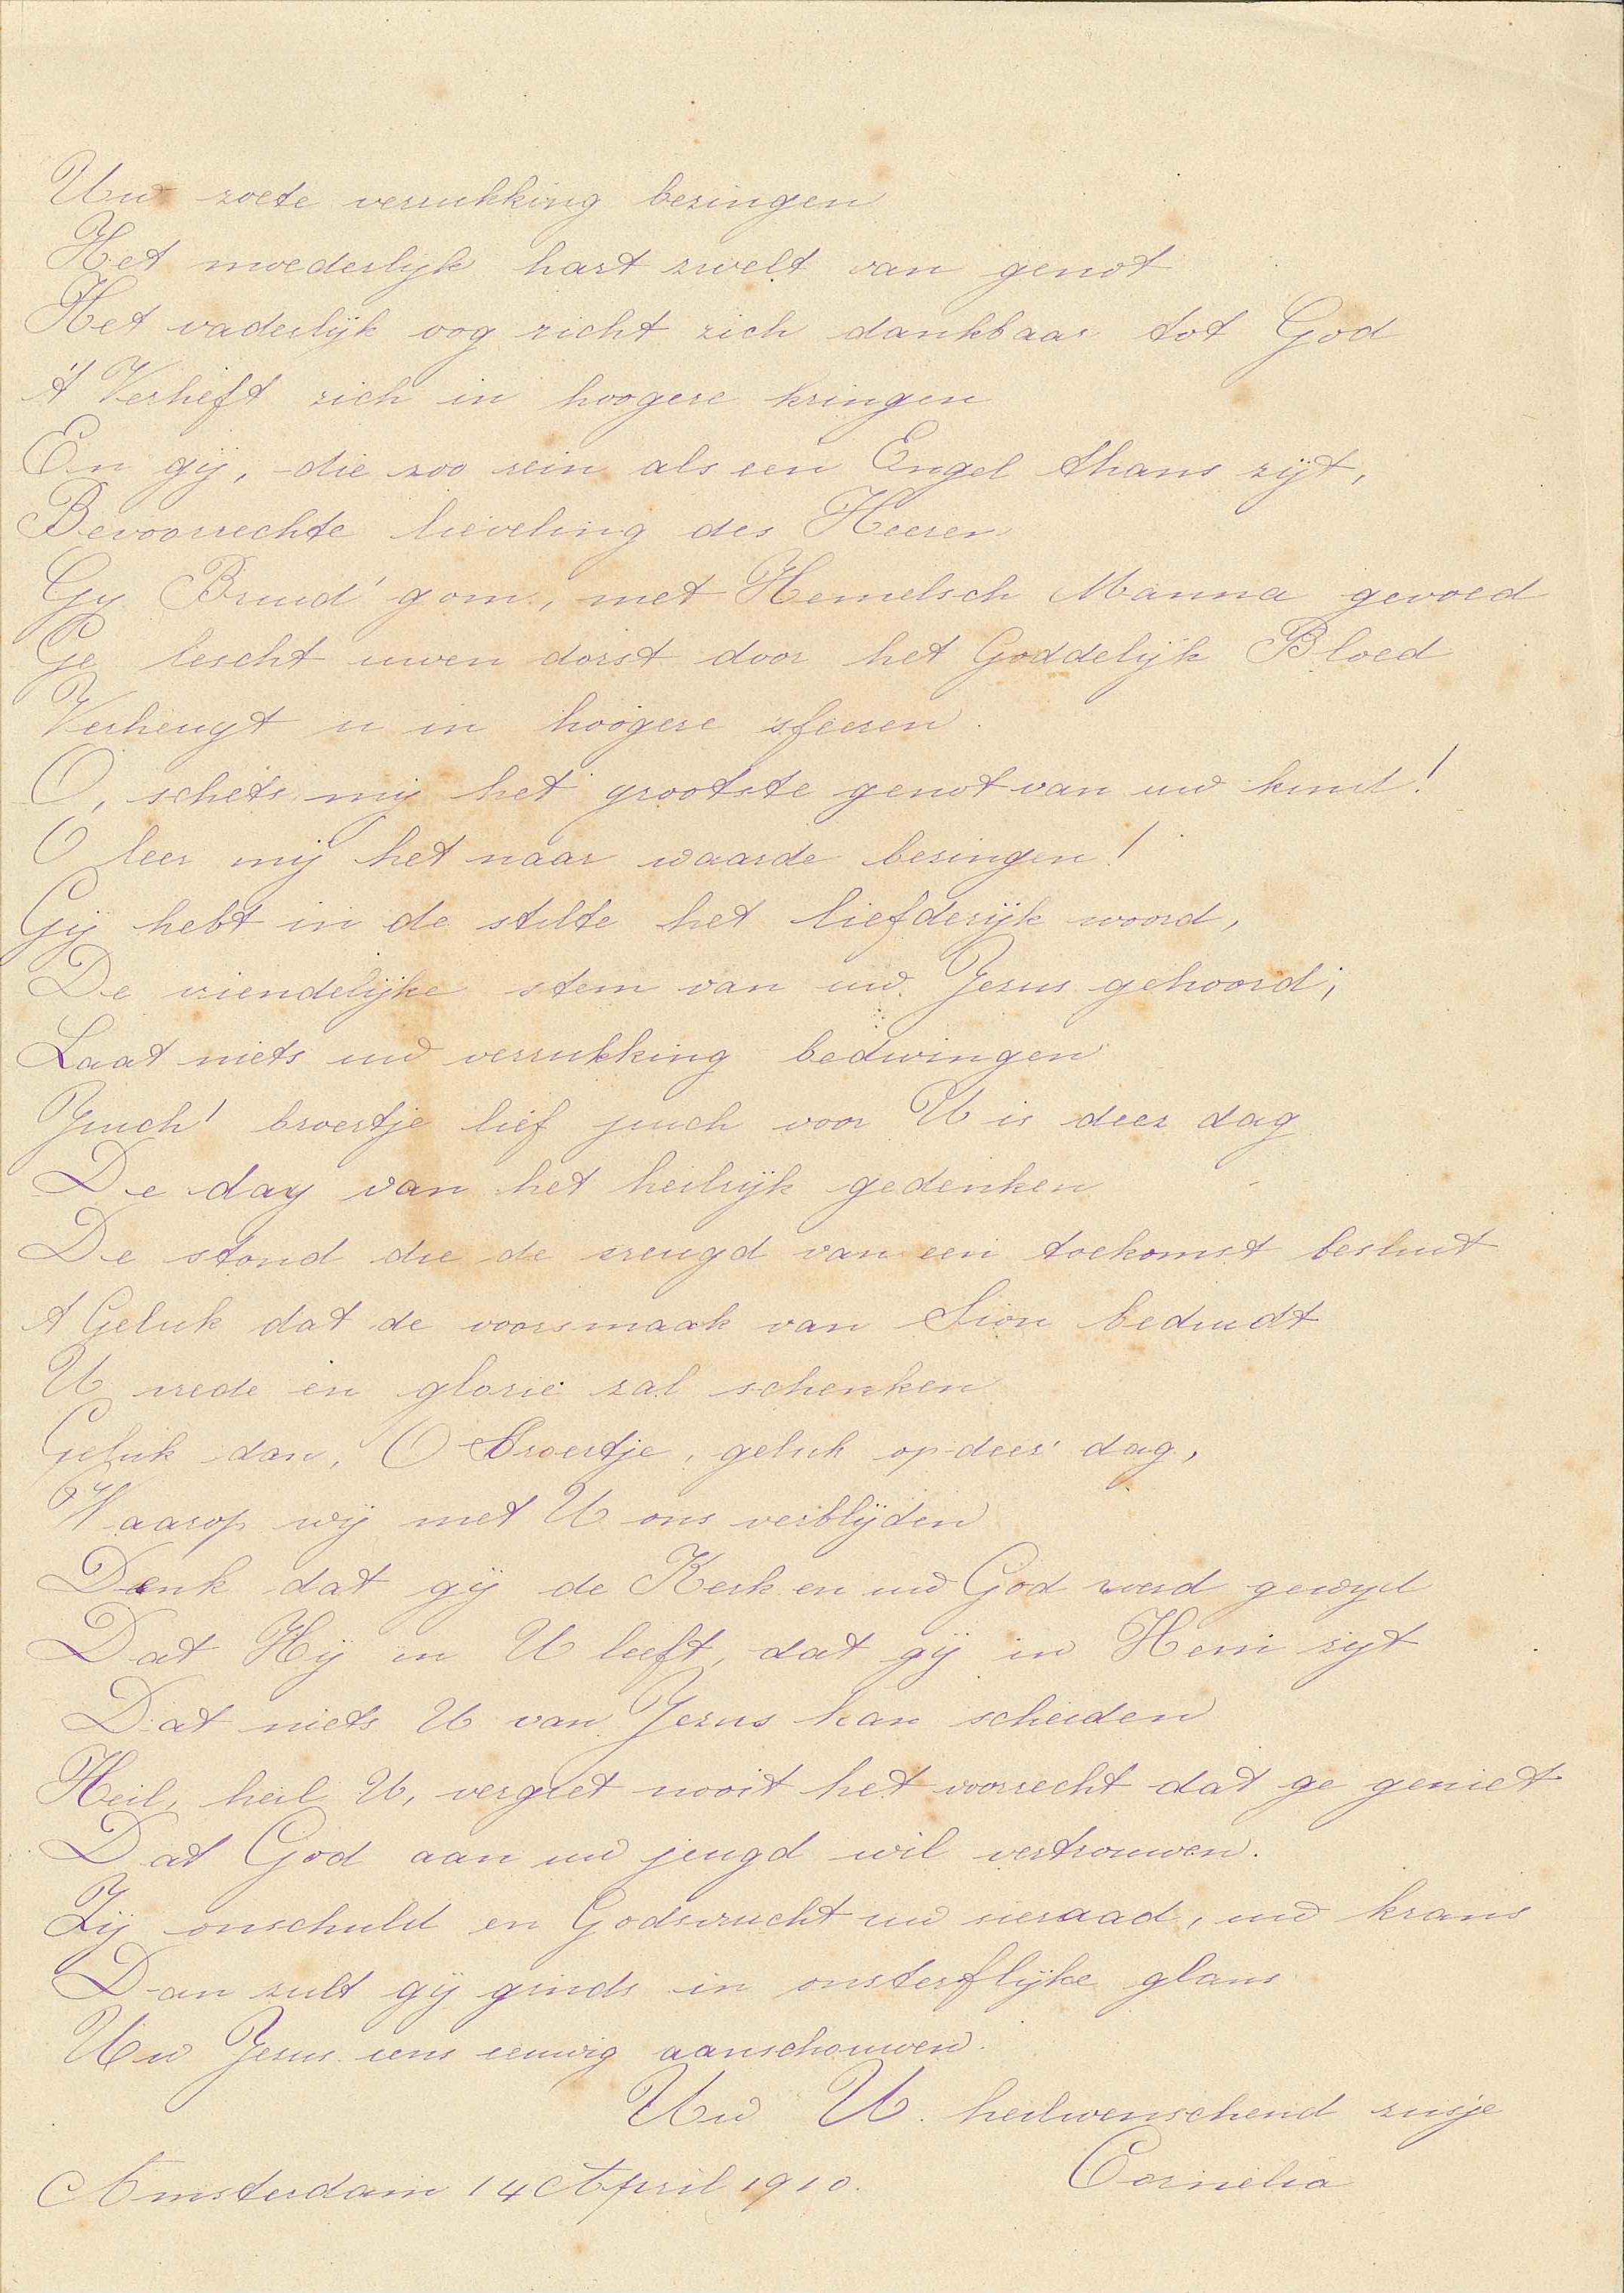 Uw zoete verrukking bezingen
Het moederlijk hart zwelt van genot
Het vaderlijk oog richt zich dankbaar tot God
't Verheft zich in hoogere kringen
En gij, die zoo rein als een Engel thans zijt,
Bevoorrechte lieveling des Heeren
Gy Bruid'gom, met Hemelsch Manna gevoed
Ge lescht uwen dorst door het Goddelijk Bloed
Verheugt u in hoogere sfeeren.
O, schets mij het grootste genot van uw kind!
O leer mij het naar waarde bezingen!
Gij hebt in de stilte het liefderijk woord,
De vriendelijke stem van uw Jezus gehoord;
Laat niets uw verrukking bedwingen
Juich! broertje lief juich voor U is deez dag
De dag van het heilrijk gedenken
De stond die de vreugd van een toekomst besluit
't Geluk dat de voorsmaak van Sion beduidt
U vrede en glorie zal schenken
Geluk dan, O Broertje, geluk op deez' dag,
Waarop wij met U ons verblijden
Denk dat gij de Kerk en uw God werd gewijd
Dat Hij in U leeft, dat gij in Hem zijt
Dat niets U van Jezus kan scheiden
Heil, heil U, vergeet nooit het voorrecht dat ge geniet
Dat God aan uw jeugd wil vertrouwen.
Zij onschuld en Godsvrucht uw sieraad, uw krans
Dan zult gij ginds in onsterflijke glans
Uw Jezus eens eeuwig aanschouwen.
Uw U. heilwenschend zusje
Cornelia
Amsterdam 14 April 1910.